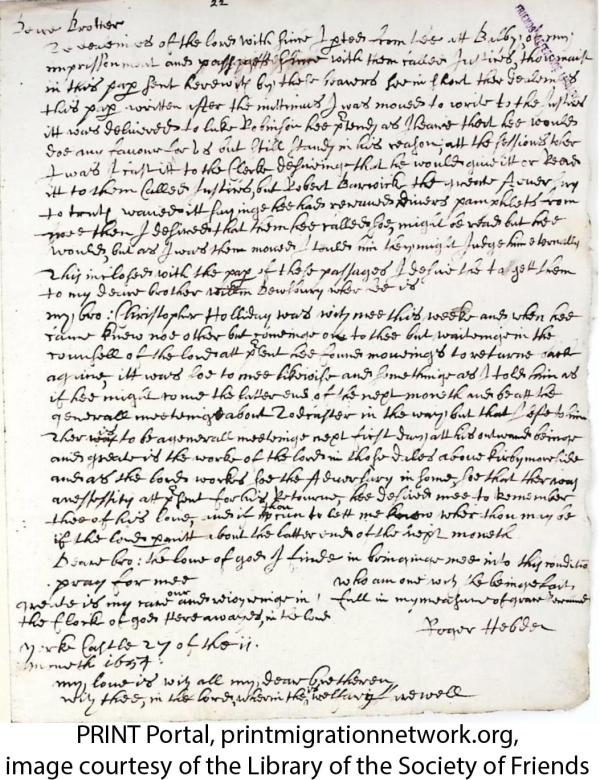 22
Deare Brother
in of the lord with since I pted from thee att Balby, of my
imprissonment and passages since with them called Justices, thou maist
in this pap sent herewith by these bearers see in short ther dealeings
this pap written after the mittimus I was moved to write to the Justices
itt was delivered to luke Robinson hee ptends as I heare that hee would
doe any favour for us but still stands in his reason, att the sessions ther
I was I cast itt to the Clerke desireinge that he would give itt or Read
itt to them Called Justices, but Robert Barwick the greate Adversary
to truth waved itt sayinge hee had receaved divers pamphlets from
mee then I desired that them hee called soe, might be read but hee
would, but as I was then moved I tould him they might Judge him eternally
This inclosed with the pap of these passages I desire thee to gett them
to my deare brother Dewsbury wher hee is
my bro: Christopher Holliday was with mee this weeke and when hee
came knew noe other but comeinge on to thee but waiteinge in the
counsell of the lord att psent hee found moveings to returne back
againe, itt was soe to mee likewise and somethinge as I told him as
if hee might come the latter end of the next moneth and be att the
generall meeteinge about Todcaster in the way but that I left to him
Ther is to be a generall meeteinge next first day att his outward beinge
and greate is the worke of the lord in those dales above kirbymoreside
and as the lord works soe the Adversary in some, soe that ther was
a nessessity att psent for his Returne, hee desired mee to Remember
thee of his love, and if thou can to lett me know wher thou may be
if the lord pmitt about the latter end of the next moneth
Deare bro: the love of god I finde in bringinge mee into this condition
pray for mee who am one with
greate is my care and rejoyceinge in our full in my measure of grace
the flock of god Here awayes, in the lord
Roger Hebden
Yorke Castle 27 of the 11.
moneth 1654:
my love is with all my dear bretheren
with thee, in the lord, wherin the welfare is farewell
PRINT Portal, printmigrationnetwork.org,
image courtesy of the Library of the Society of Friends